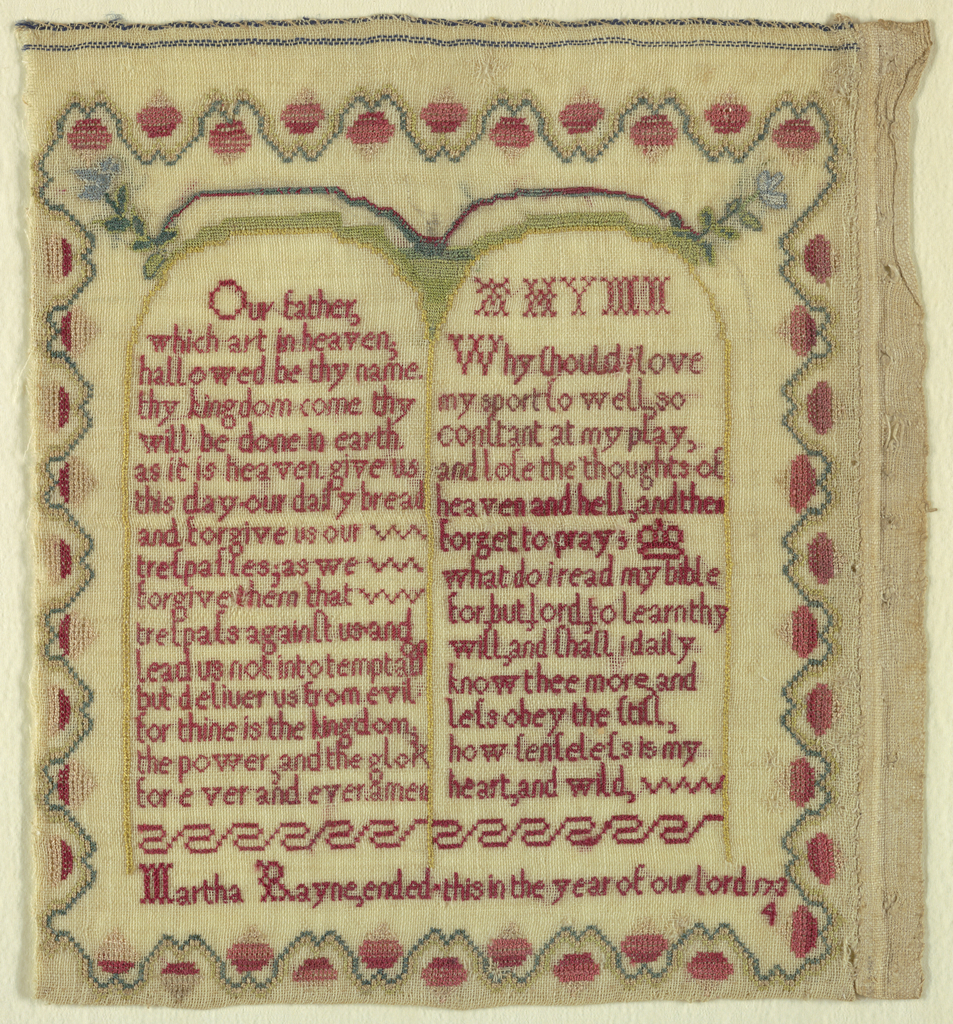 Our father,
which art in heaven,
hallowed be thy name.
thy kingdom come thy
will be done in earth.
as it is heaven, give us
this day our daily bread
and forgive us our
treſpaſſes, as we
forgive them that
treſpaſs againſt us and
lead us not into temptati
but deliver us from evil
for thine is the kingdom,
the power, and the glor
for ever and ever. amen
A HYMN
Why ſhould i love
my sport ſo well, so
conſtant at my play,
and loſe the thoughts of
heaven and hell, and then
forget to pray;
what do i read my bible
for, but, lord, to learn thy
will, and ſhall i daily
know thee more, and
leſs obey the ſtill,
how ſenſeleſs is my
heart, and wild,
Martha Rayne, ended this in the year of our lord 173
4